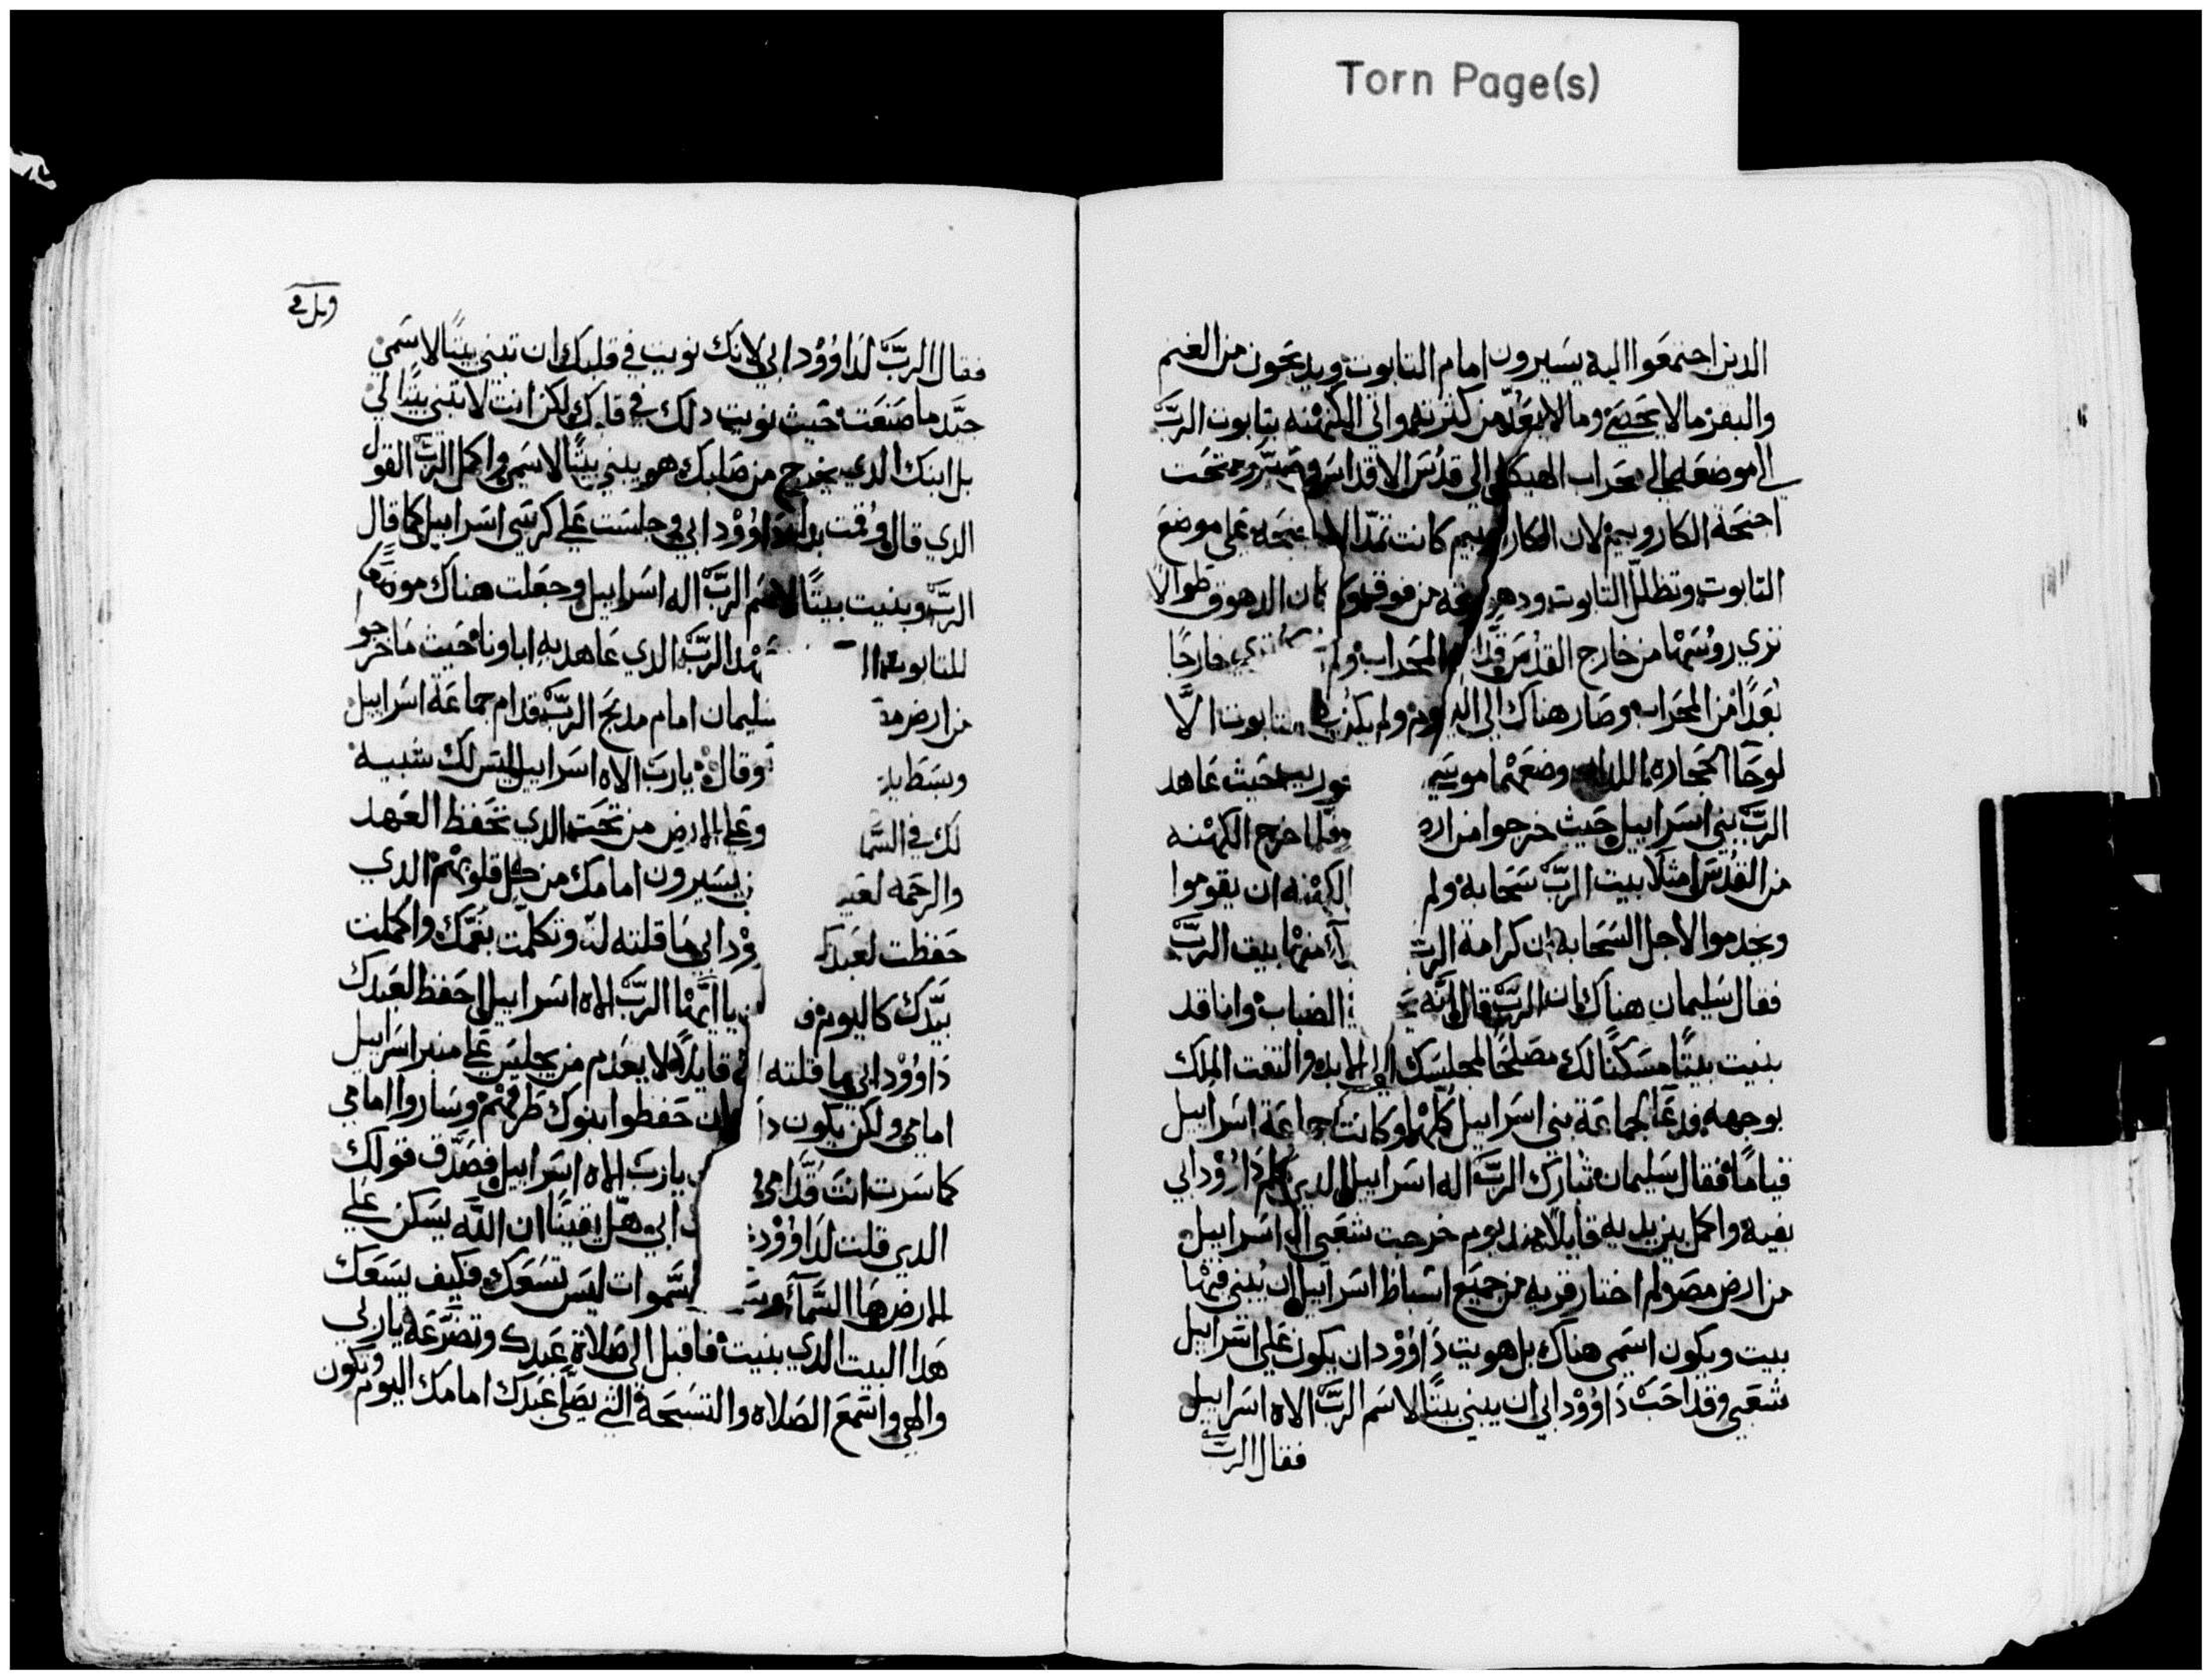 Torn Page(s)
الدين اجتمعوا اليه يسيرون امام التابوت ويدبحون من الغنم
والبقر ما لا يحصى وما لا يعد من كثرته واتي الكهنه بتابوت الرب
الي موضعه الي محراب الهيكل الي قدس الاقداس تحت
اجنحة الكاروبيم لان الكاروبيم كانت تمد علي موضع
التابوت وتظلل التابوت من فوق طوالا
تري روسها من خارج القدس المحراب ولم تري خارجا
بعدا من المحراب وصار هناك الي اليوم ولم يكن في التابوت الا
لوحا الحجاره اللدان وضعهما موسي حيث عاهد
الرب بني اسراييل حيث خرجوا من فلما خرج الكهنه
من القدس امتلا بيت الرب سحابة ولم الكهنه ان يقوموا
ويخدموا لاجل السحابه ان كرامة الرب بيت الرب
فقال سليمان هناك ان الرب قال انه الضباب وانا قد
بنيت بيتا مسكنا لك مصلحا لمجلسك الي الابد والتفت الملك
بوجهه ودعا لجماعة بني اسراييل كلها وكانت جماعة اسراييل
قياما فقال سليمان تبارك الرب اله اسراييل الدي كلم داوود ابي
بفيه واكمل بيديه قايلا مند يوم خرجت شعبي ال اسراييل
من ارض مصر ولم اختار قريه من جميع اسباط اسراييل ان يبني فيها
بيت ويكون اسمي هناك بل هويت داوود ان يكون علي اسراييل
شعبي وقد احب داوود ابي ان يبني بيتا لاسم الرب الاه اسراييل
فقال الرب
فقال الرب لداوود ابي لانك نويت في قلبك ان تبني بيتا لاسمي
جيد ما صنعت حيث نويت دلك في قلبك لكن انت لا تبني بيتا لي
بل ابنك الدي يخرج من صلبك هو يبني بيتا لاسمي واكمل الرب القول
الدي قال وقمت بدل داوود ابي وجلست علي كرسي اسراييل كما قال
الرب وبنيت بيتا لاسم الرب اله اسراييل وجعلت هناك موضعا
للتابوت الرب الدي عاهد به اباونا حيث ما خرجو
من ارض سليمان امام مدبح الرب قدام جماعة اسراييل
وبسط وقال يا رب الاه اسراييل ليس لك شبيه
لك في السما وعلي الارض من تحت الدي تحفظ العهد
والرحمه يسيرون امامك من كل قلوبهم الدي
حفظت لعبدك ابي ما قلته له وتكلمت بفمك واكملت
بيدك كاليوم يا ايها الرب الاه اسراييل احفظ لعبدك
داوود ابي ما قلته قايلا لا يعدم من يجلس علي منبر اسراييل
امامي ولكن يكون ان حفظوا بنوك طرقهم وساروا امامي
كما سرت انت قدامي يا رب الاه اسراييل فصدق قولك
الدي قلت لداوود ابي هل يقينا ان الله يسكن علي
الارض ها السما السموات ليس تسعك فكيف يسعك
هدا البيت الدي بنيت فاقبل الي صلاة عبدك وتضرعه يا ربي
والهي واسمع الصلاه والتسبحة التي يصلي عبدك امامك اليوم ويكون